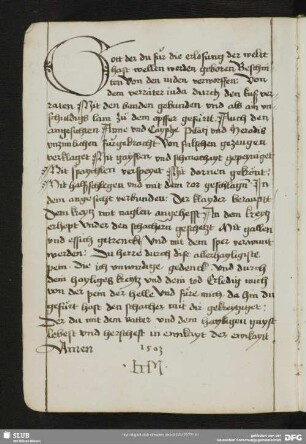 Gott der du für die erlosung der wellt
hast wellen werden geboren Beschni
ten Von den iuden verworffen: Von
dem verräter iuda durch den kuss ver
raten Mit den banden gebunden vnd als ain vn
schuldigs lam zu dem opffer gefürt. Auch den
angesichten Anne vnd Cayphe Pilati vnd Herodis
vnzimlichen fürgebracht Von falschen gezeugen
verklaget Mit gayslen vnd schmachayt gepeyniget
Mit spaychlen verspeyet Mit dornen gekrönt:
Mit halsschlegen vnd mit dem ror geschlagen In
dem angesicht verbunden: Der klayder beraupt
Dem kreytz mit naglen angehefft In dem kreytz
erhept Vnder den schachern geschetzt Mit gallen
vnd essich getrenckt Vnd mit dem sper verwunt
worden: Du herre durch dise allerhayligiste
pein die ich vnwirdige gedenck vnd durch
dein hayliges kreytz vnd dein tod Erledig mich
von der pein der helle vnd füre mich da hin du
gefürt hast den schacher mit dir gekreytziget:
Der du mit dem vatter vnd dem hayligen gayst
lebest vnd herschest in ewikayt der ewikayt
Amen
1523
SLUB
DFG